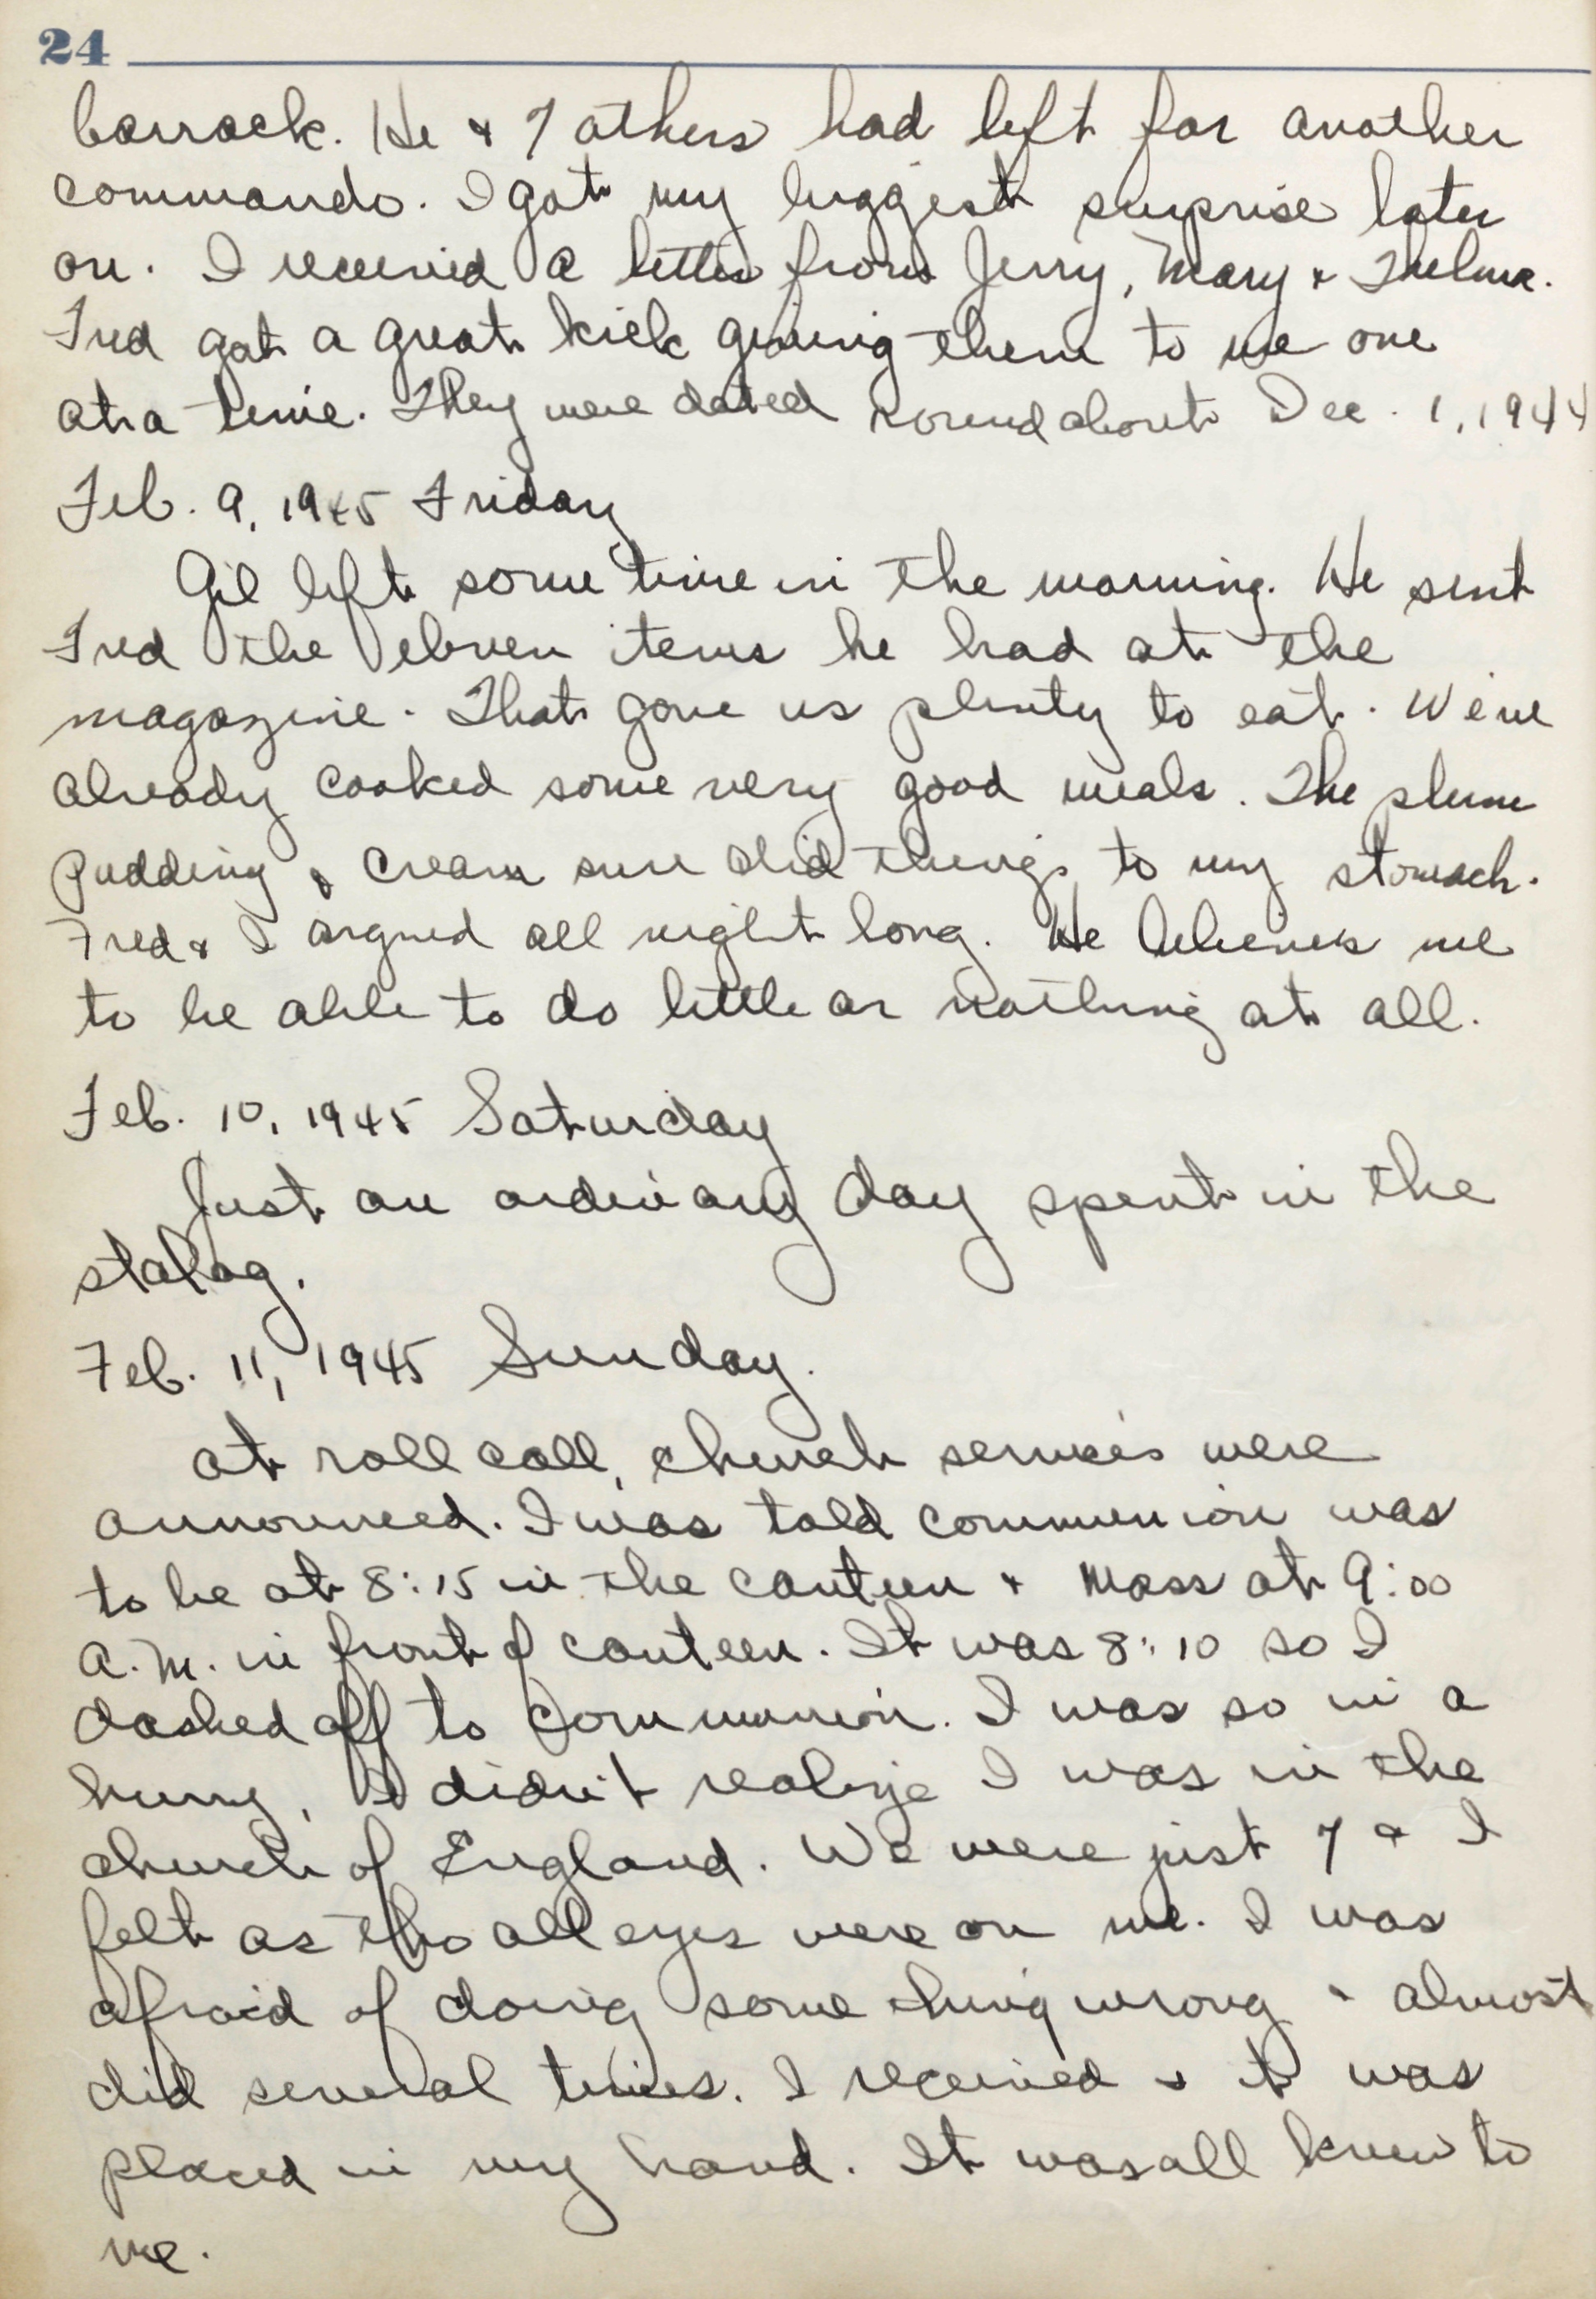 24
barrack. He & 7 others had left for another
commando. I got my biggest surprise later
on. I received a letter from Jerry, Mary & Thelma.
Fred got a great kick giving them to me one
at a time. They were dated roundabout Dec. 1, 1944
Feb. 9, 1945 Friday
Gil left some time in the morning. He sent
Fred the eleven items he had at the
magazine. That gave us plenty to eat. We've
already cooked some very good meals. The plum
pudding & cream sure did things to my stomach.
Fred & I argued all night long. He believes me
to be able to do little or nothing at all.
Feb. 10, 1945 Saturday
Just an ordinary day spent in the
stalag.
Feb. 11, 1945 Sunday.
At roll call, church services were
announced. I was told communion was
to be at 8:15 in the canteen & Mass at 9:00
A.M. in front of canteen. It was 8:10 so I
dashed off to Communion. I was so in a
hurry, I didn't realize I was in the
church of England. We were just 7 & I
felt as tho all eyes were on me. I was
afraid of doing some thing wrong & almost
did several times. I received & it was
placed in my hand. It was all knew to
me.